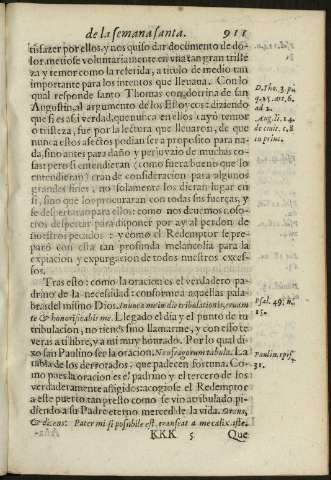 de la semana santa. 911
tisfazer por ellos, y nos quiso dar documento de do-
lor, metiose voluntariamente en vna tan gran triste
za y temor como la referida, a titulo de medio tan
importante para los intentos que lleuaua. Con lo
qual responde santo Thomas con dotrina de san
Augustin, al argumento de los Estoycos: diziendo
que si es assi verdad, que nunca en ellos cayó temor
o tristeza, fue por la lectura que lleuaron, de que
nunca estos afectos podian ser a proposito para na-
da, sino antes para daño y perjuyzio de muchas co-
sas: pero si entendieran (como fuera bueno que lo
entendieran) eran de consideracion para algunos
grandes fines, no solamente los dieran lugar en
si, sino que lo procuraran con todas sus fuerças, y
se despertaran para ellos: como nos deuemos noso-
tros despertar para disponer por ay al perdon de
nuestros pecados: y como el Redemptor se pre-
paró con esta tan profunda melancolia para la
expiacion y expurgacion de todos nuestros exces-
sos.
Tras esto: como la oracion es el verdadero pa-
drino de la necesidad: conforme a aquellas pala-
bras del mismo Dios, Inuoca me in die tribulationis, eruam
te & honorificabis me. Llegado el dia y el punto de tu
tribulacion, no tienes sino llamarme, y con esto te
veras a ti libre, y a mi muy honrado. Por lo qual di-
xo san Paulino ser la oracion, Naufragorum tabula. La
tabla de los derrotados, que padecen fortuna. Co-
mo pues la oracion es el padrino y el tercero de los
verdaderamente afligidos: acogiose el Redemptor
a este puerto tan presto como se vio atribulado, pi-
diendo a su Padre eterno merced de la vida. Orans,
& dicens: Pater mi si possibile est, transeat a me calix iste.
KKK 5 Que
D. Tho. 3. p.
q. 15. art. 6.
ad 2.
Aug. li. 14.
de ciuit. c. 8
in princ.
Psal. 49. n.
15.
Paulin. epis.
31.